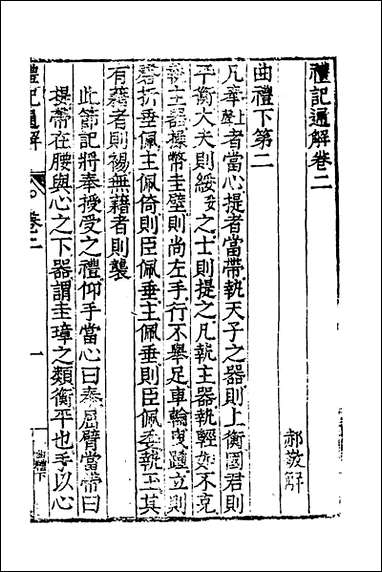 禮記通解卷二
郝敬解
曲禮下第二
凡奉上聲者當心提者當帶執天子之器則上衡國君則
平衡大夫則綏妥之士則提之凡執主器執輕如不克
執主器操幣圭璧則尚左手行不舉足車輪曳踵立則
磬折垂佩主佩倚則臣佩垂主佩垂則臣佩委執玉其
有藉者則裼無藉者則襲
此節記將奉授受之禮仰手當心曰奉屈臂當帶曰
提帶在腰與心之下器謂圭璋之類衡平也手以心
禮記通解 卷二 一 曲禮下